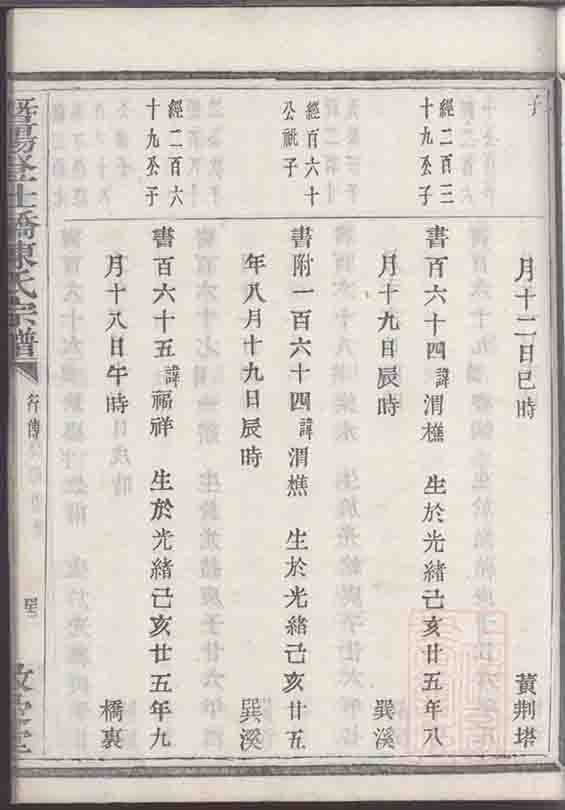 子
月十二日巳時 黃荆塔
經二百三
十九公子
書百六十四諱渭樵 生於光緒己亥廿五年八
月十九日辰時 巽溪
經百六十
公祇子
書附一百六十四諱渭樵 生於光緒己亥廿五
年八月十九日辰時 巽溪
經二百六
十九公子
書百六十五諱福祥 生於光緒己亥廿五年九
月十八日午時 橋裏
暨陽
橋陳氏宗譜
行傳